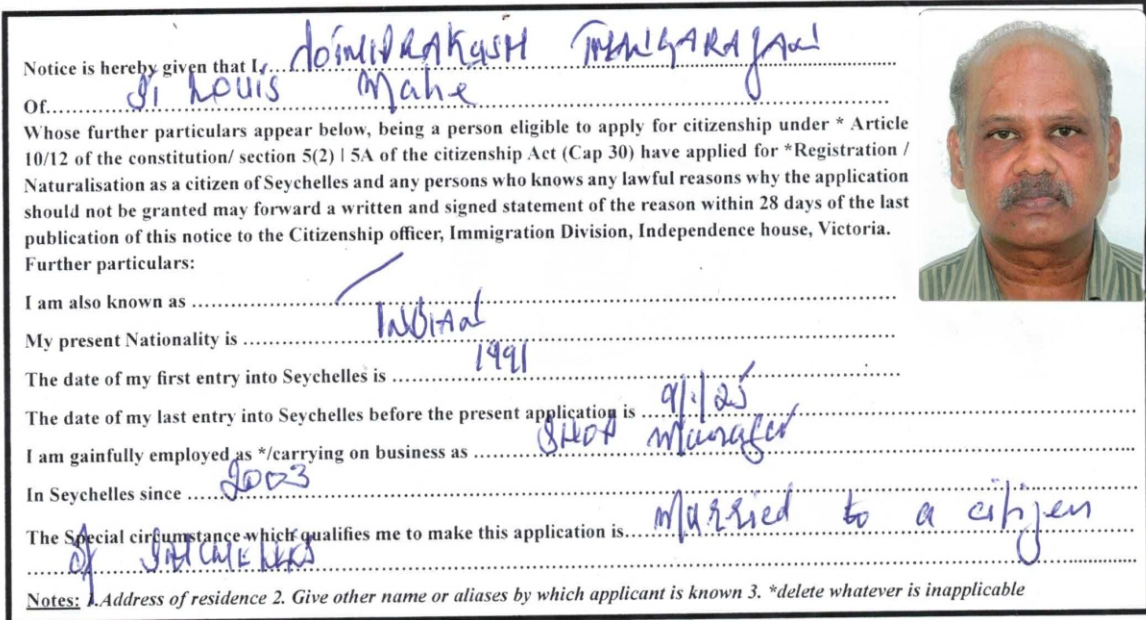 Notice is hereby given that I, JOTHIPRAKASH THANGARAJAN
Of St Louis Mahe
Whose further particulars appear below, being a person eligible to apply for citizenship under * Article
10/12 of the constitution/ section 5(2) | 5A of the citizenship Act (Cap 30) have applied for *Registration /
Naturalisation as a citizen of Seychelles and any persons who knows any lawful reasons why the application
should not be granted may forward a written and signed statement of the reason within 28 days of the last
publication of this notice to the Citizenship officer, Immigration Division, Independence house, Victoria.
Further particulars:
I am also known as
My present Nationality is INDIAN
The date of my first entry into Seychelles is 1991
The date of my last entry into Seychelles before the present application is 9/1/25
I am gainfully employed as */carrying on business as SHOP Manager
In Seychelles since 2003
The Special circumstance which qualifies me to make this application is married to a citizen
of SEYCHELLES
Notes: 1.Address of residence 2. Give other name or aliases by which applicant is known 3. *delete whatever is inapplicable